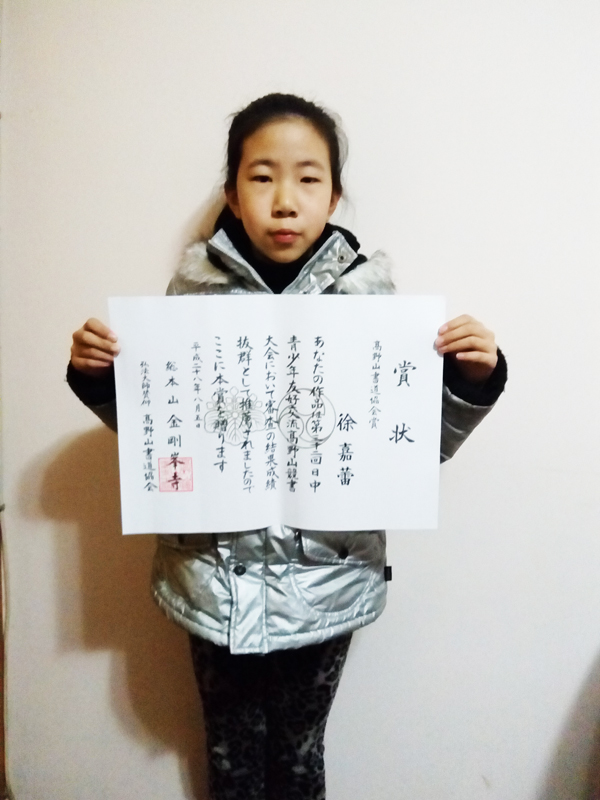 賞状
高野山書道協会賞
徐嘉蕾
あなたの作品は第三十二回日中
青少年友好交流高野山競書
大会において審査の結果成績
抜群として推薦されましたので
ここに本賞を贈ります
平成二十八年八月五日
総本山金剛峯寺
弘法大師奉砚
高野山書道協会